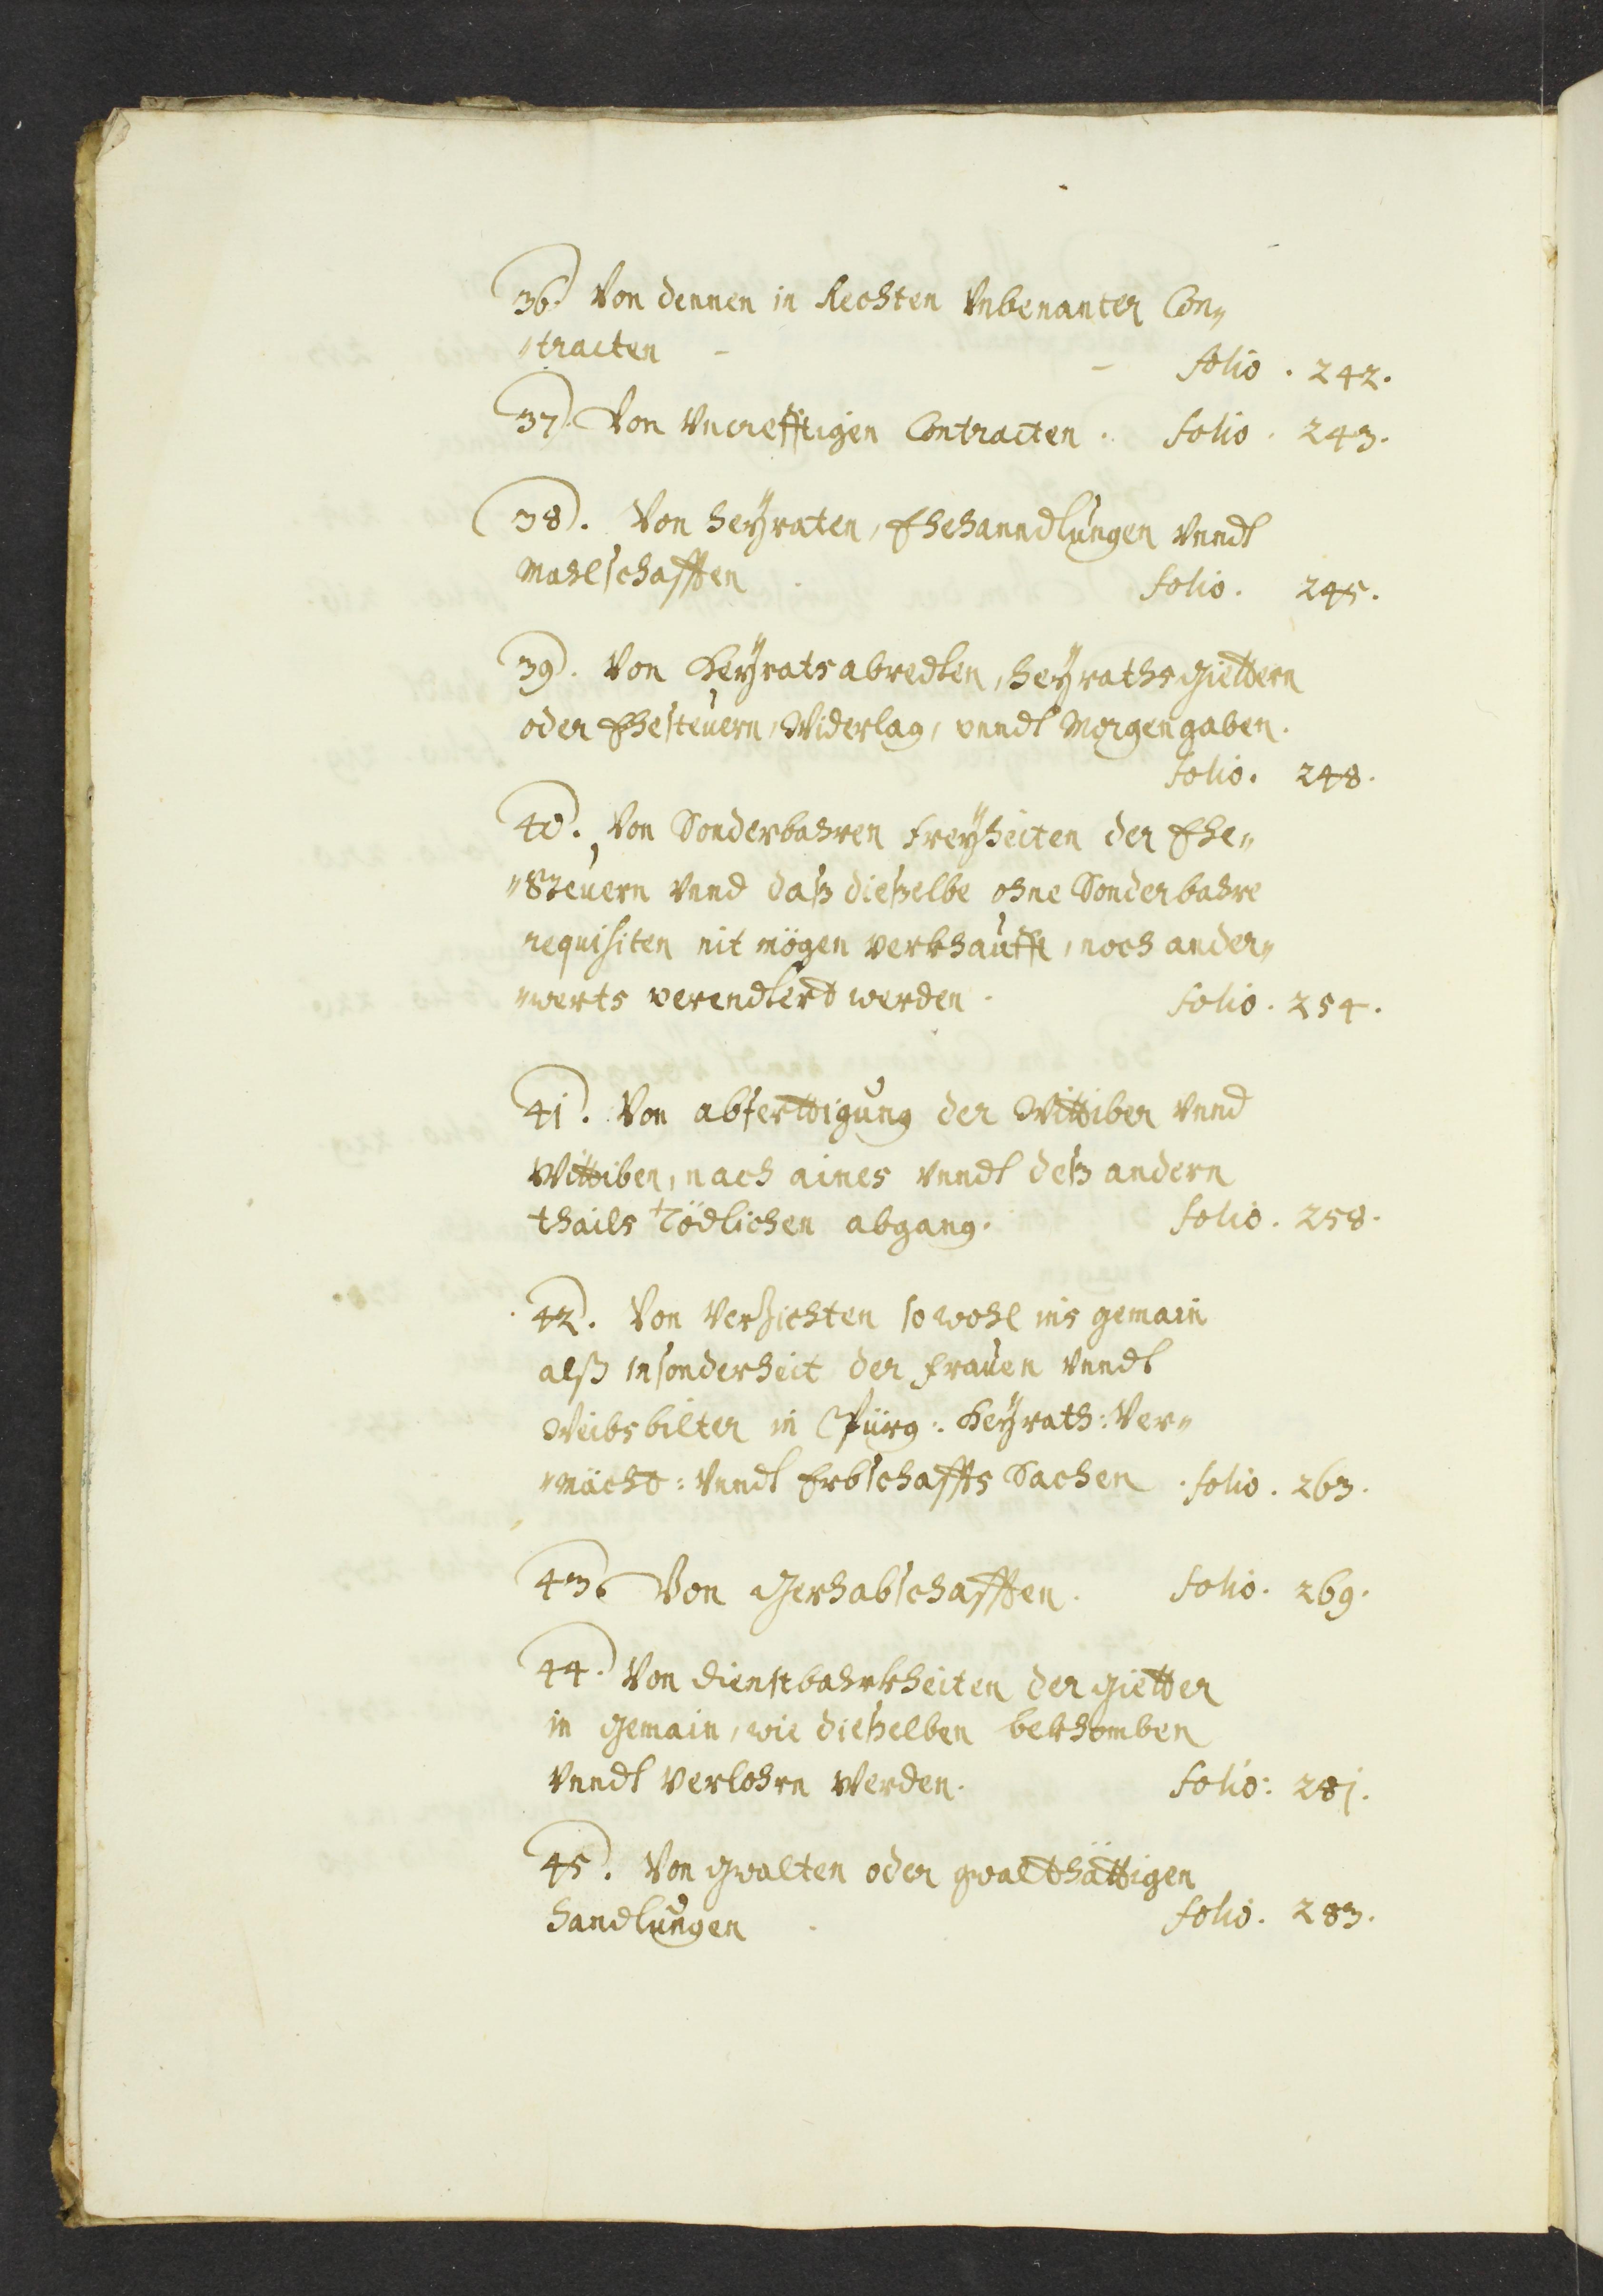 36. Von dennen in Rechten Vnbenanter Con„
„tracten - - folio . 242.
37. Von Vncrefftigen Contracten . folio . 243.
38. Von heyraten, Ehehanndlungen vnndt
Mahlschafften folio . 245.
39. Von Heyratsabredten, heyrathsgiettern
oder Ehesteuern, Widerlag, vnndt Morgengaben.
folio . 248.
40. Von Sonderbahren Freyheiten der Ehe„
„Steuern vnnd daß dießelbe ohne Sonderbahre
requisiten nit mögen verkhaufft, noch ander„
„werts verendtert werden . folio . 254.
41. Von abferttigung der Wittiber vnnd
Wittiben, nach aines vnndt deß andern
thails tödlichen abgang. folio . 258.
42. Von Verzichten so wohl ins gemain
alß insonderheit der frauen vnndt
Weibsbilter in Pürg: Heyrath: Ver„
„mächt: vnndt Erbschaffts Sachen . folio . 263.
43. Von Gerhabschafften . folio . 269.
44. Von dienstbahrkheiten der gietter
in gemain, wie dießelben bekhomben
vnndt verlohrn werden. folio: 281.
45. Von gwalten oder gwalthättigen
handlungen . folio . 283.